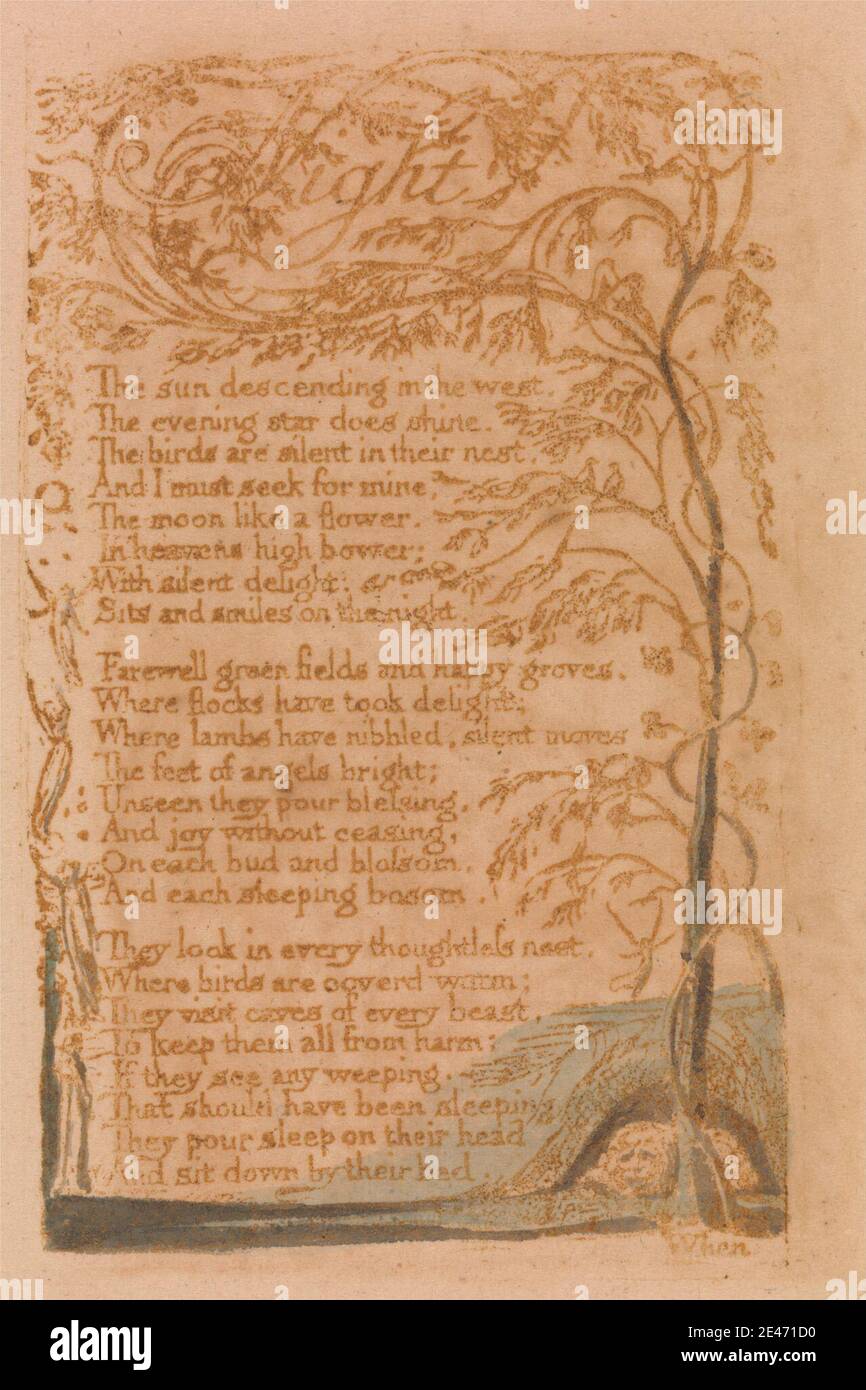 Night
The sun descending in the west.
The evening star does shine.
The birds are silent in their nest.
And I must seek for mine,
The moon like a flower.
In heavens high bower;
With silent delight,
Sits and smiles on the night.
Farewell green fields and happy groves,
Where flocks have took delight;
Where lambs have nibbled, silent moves
The feet of angels bright;
Unseen they pour blessing,
And joy without ceasing,
On each bud and blossom,
And each sleeping bosom.
They look in every thoughtless nest,
Where birds are coverd warm;
They visit caves of every beast,
To keep them all from harm;
If they see any weeping,
That should have been sleeping
They pour sleep on their head
And sit down by their bed.
When
alamy
alamy
alamy
Image ID: 2E471D0
www.alamy.com